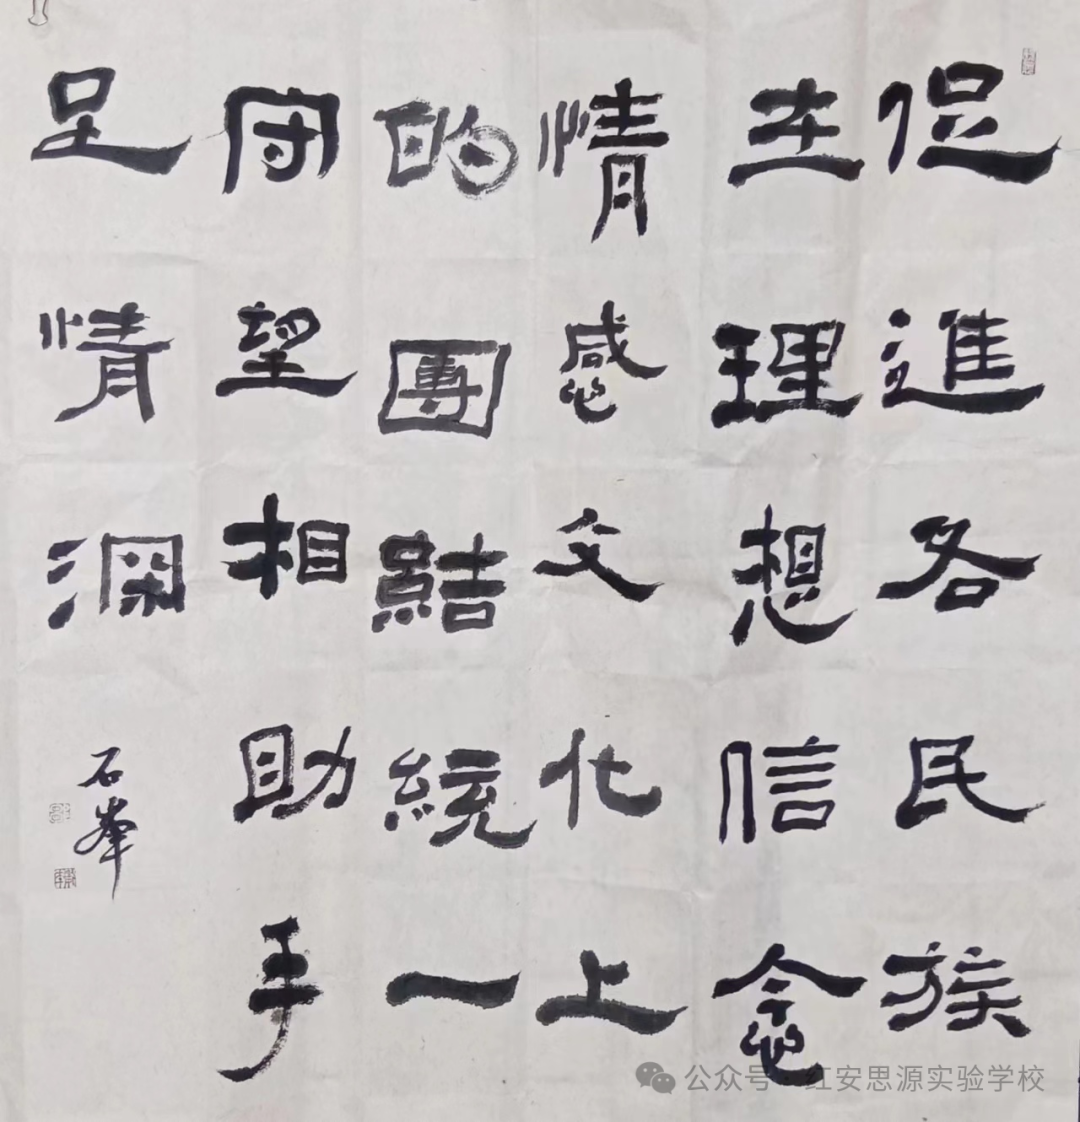 促進各民族
在理想信念
情感文化上
的團結統一
守望相助手
足情深
石峰
公众号·红安思源实验学校